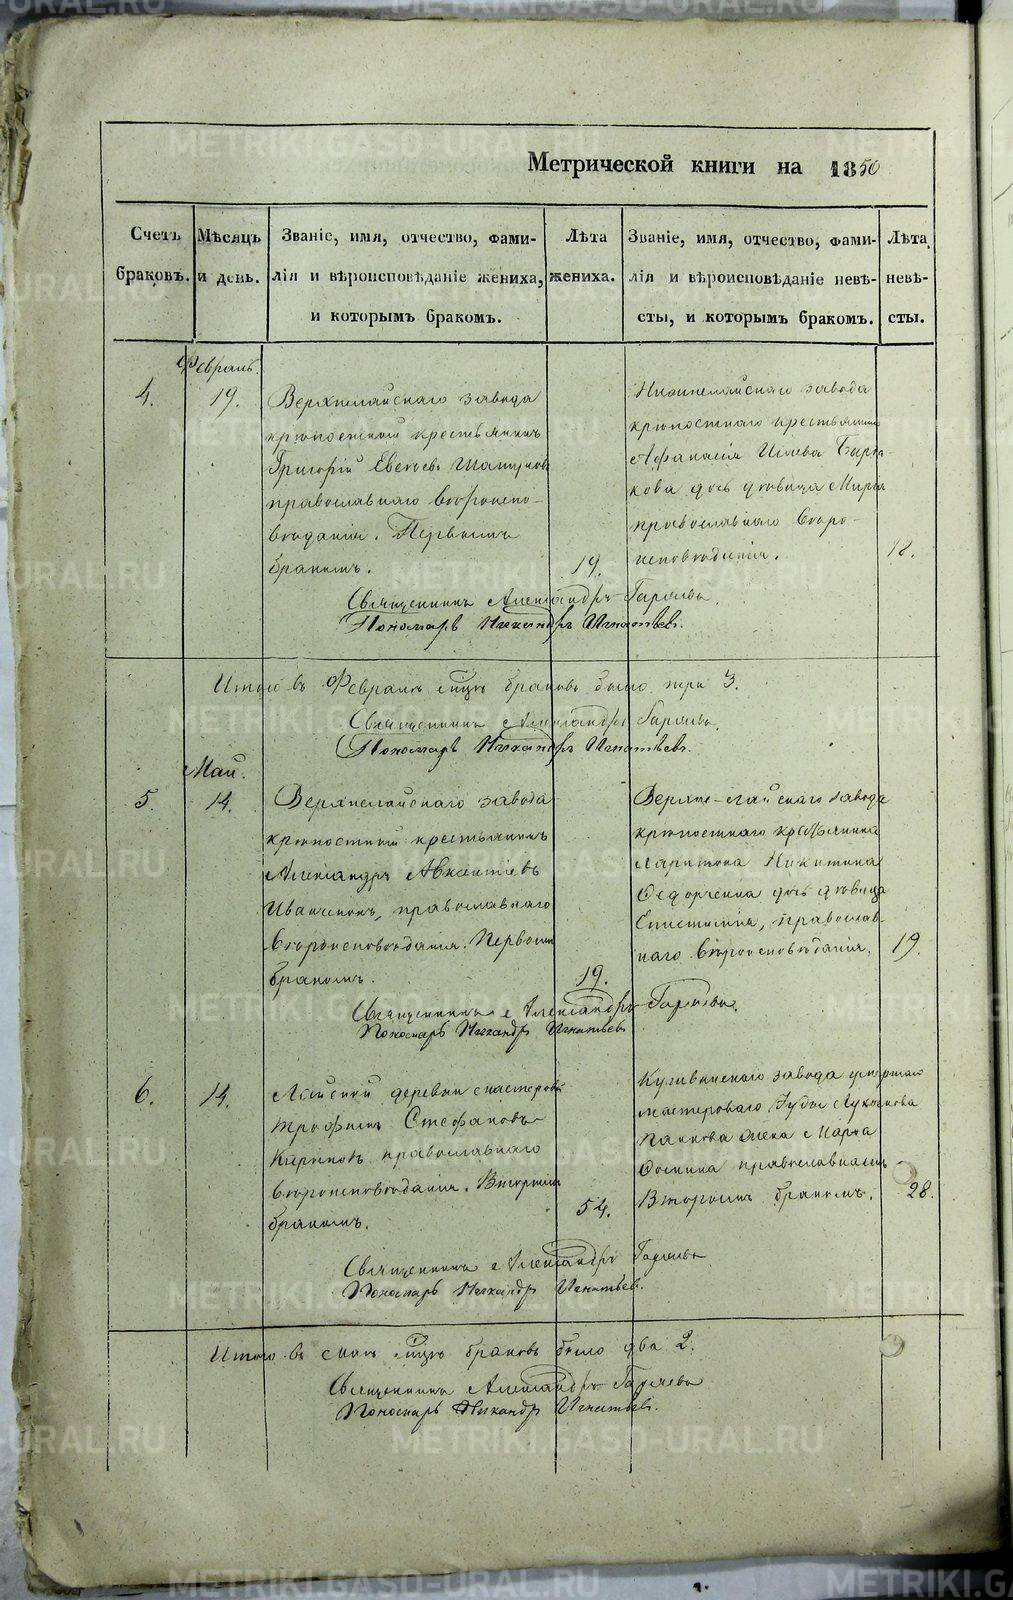 Метрической книги на 1850
Счетъ браковъ.
Мѣсяцъ и день.
Званіе, имя, отчество, фами-
лія и вѣроисповѣданіе жениха,
и которымъ бракомъ.
Лѣта жениха.
Званіе, имя, отчество, фами-
лія и вѣроисповѣданіе невѣ-
сты, и которымъ бракомъ.
Лѣта невѣ-
сты.
Февраль.
4.
19.
Верхнелайскаго завода
крѣпостной крестьянинъ
Григорій
православнаго вѣроиспо-
вѣданія. Первымъ
бракомъ.
19.
Нижнелайскаго завода
крѣпостнаго крестьянина
Афанасія
кова дочь дѣвица Марья
православнаго вѣро-
исповѣданія.
18.
Священникъ Александръ
Пономарь Никандръ Игнатьевъ.
Итого въ Февралѣ мцѣ браковъ было три 3.
Священникъ Александръ
Пономарь Никандръ Игнатьевъ.
Май.
5.
14.
Верхнелайскаго завода
крѣпостный крестьянинъ
Александръ Авксентіевъ
православнаго
вѣроисповѣданія. Первымъ
бракомъ.
19.
Верхне-лайскаго завода
крѣпостнаго крестьянина
Харитона Никитина
дочь дѣвица
Епистимія, православ
наго вѣроисповѣданія.
19.
Священникъ Александръ
Пономарь Никандръ Игнатьевъ
6.
14.
Лайской деревни мастеровый
Трофимъ Стефановъ
православнаго
вѣроисповѣданія. Вторымъ
бракомъ.
54.
Кушвинскаго завода умершаго
мастероваго
жена Марѳа
Ѳомина
Вторымъ бракомъ.
28.
Священникъ Александръ
Пономарь Никандръ Игнатьевъ.
Итого въ маѣ мцѣ браковъ было два 2.
Священникъ Александръ
Пономарь Никандръ Игнатьевъ.
METRIKI.GASO-URAL.RU